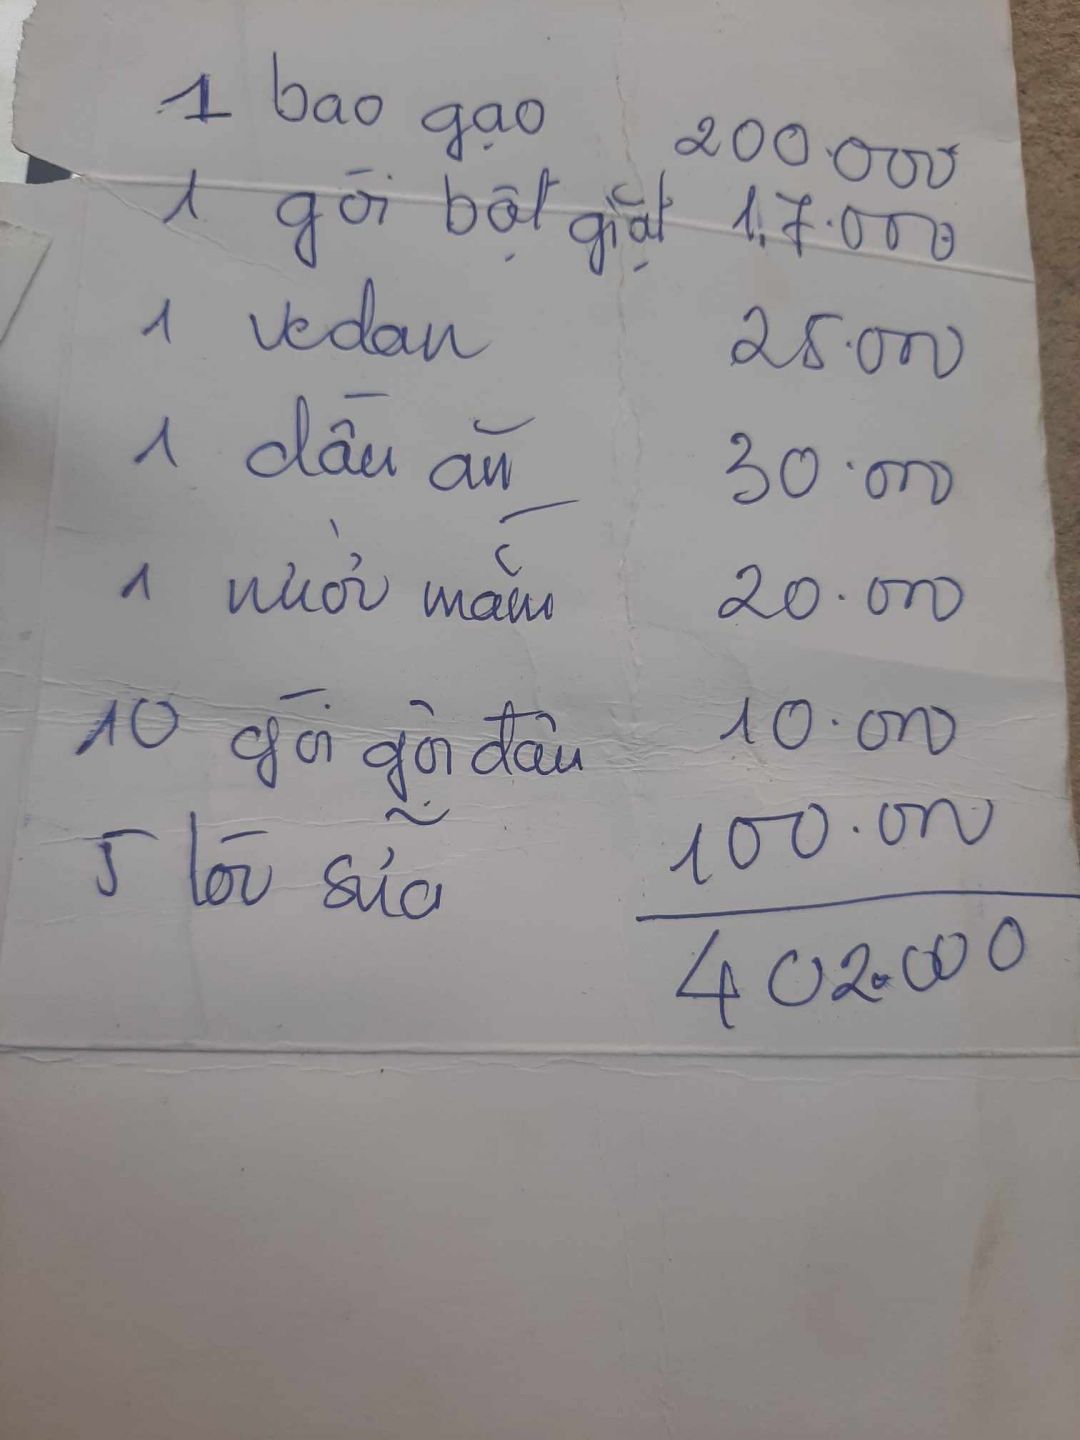 1 bao gạo 200.000
1 gói bột giặt 17.000
1 vedan 25.000
1 dầu ăn 30.000
1 nước mắm 20.000
10 gói gội đầu 10.000
5 lốc sữa 100.000
402.000